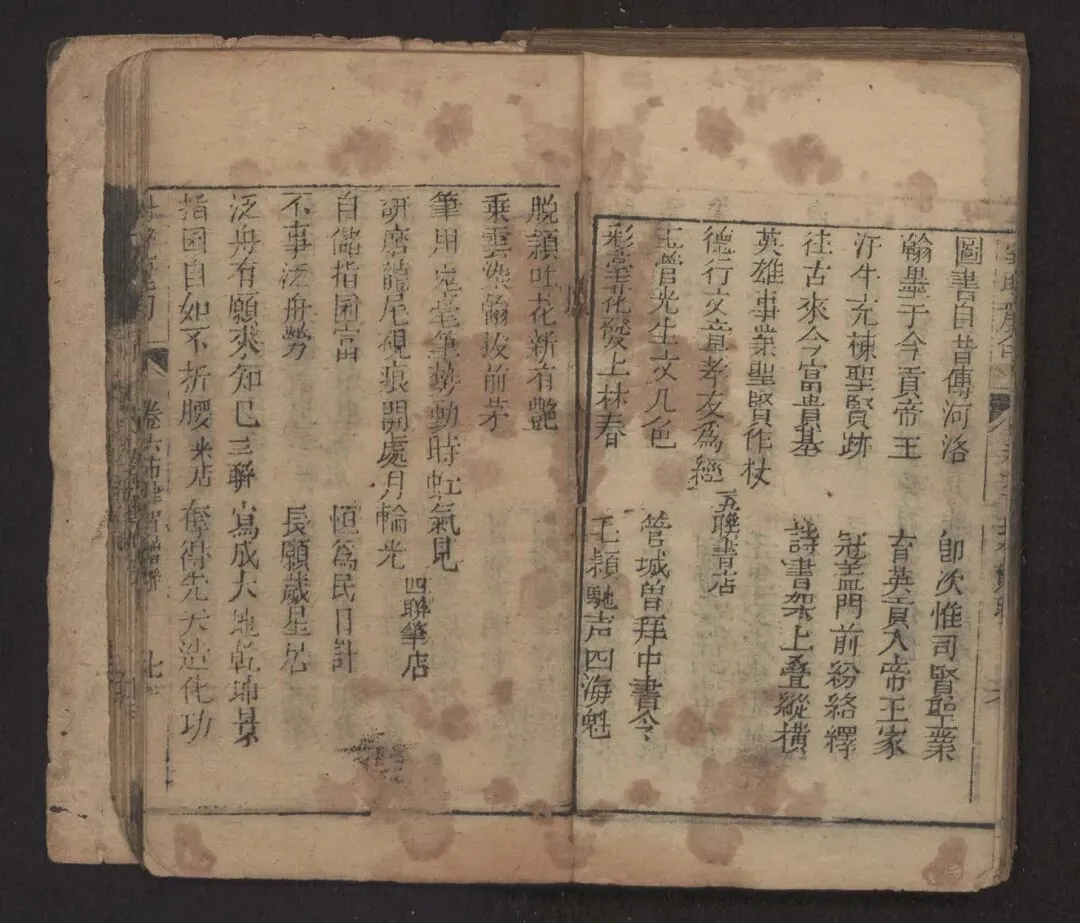 圖書自昔傳河洛 即次惟司賢聖業
翰墨于今貢帝王 育英貢入帝王家
汗牛充棟聖賢跡 冠盖門前紛絡繹
往古來今富貴基 詩書架上叠縱橫
英雄事業聖賢作杖
德行文章孝友為經 五聯書店
玉管光生文几色 管城曾拜中書令
彩毫花發上林春 毛頴馳声四海魁
脫頴吐花新有艷
乘雲染翰拔前茅
筆用兎毫筆勢動時虹氣見
研磨龍尾硯痕開處月輪光 四聯筆店
自儲指囷富 恒為民日計
不事泛舟勞 長願歲星居
泛舟有願來知已 三聯 寫成大地乾坤景
指囷自如不折腰 米店 奪得先天造化功
卷六 七